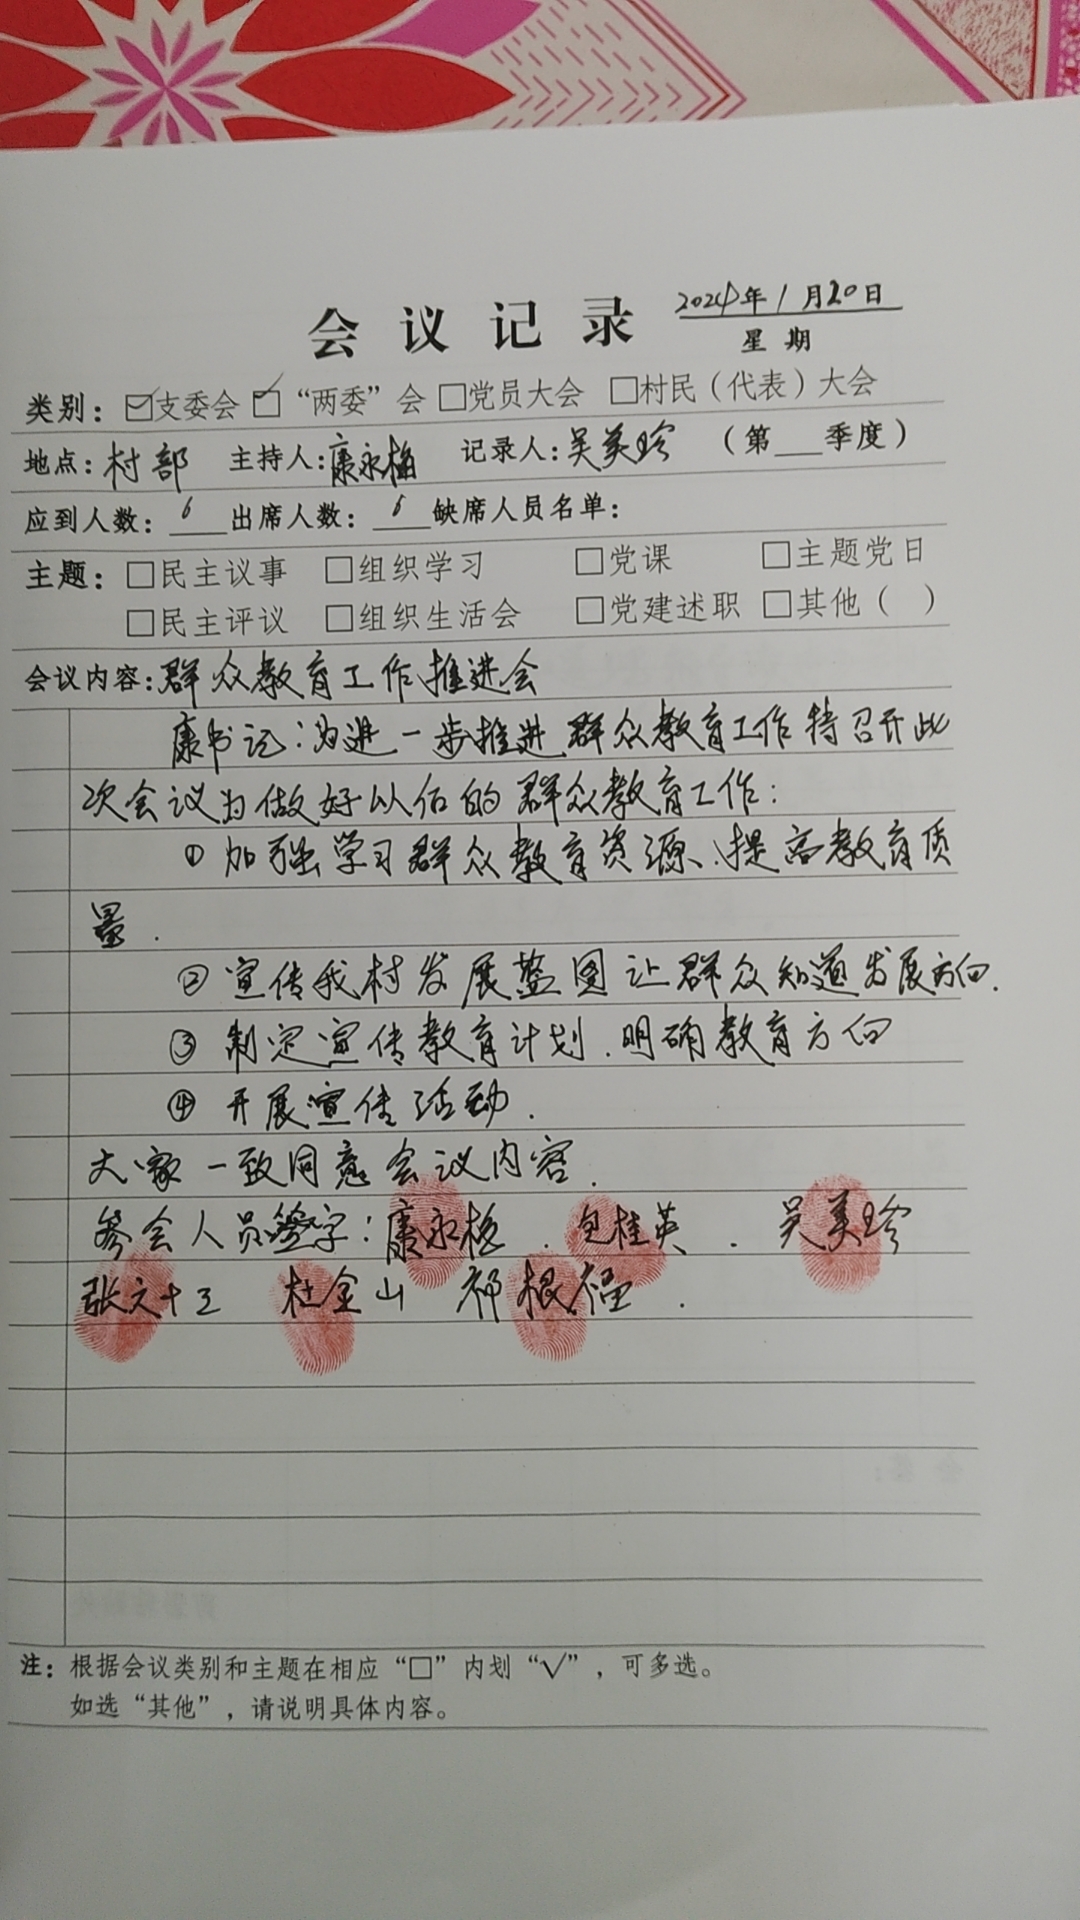 会议记录 2024年1月20日
星期
类别：☑支委会 ☑“两委”会 □党员大会 □村民（代表）大会
地点：村部 主持人：康永梅 记录人：吴美玲 （第___季度）
应到人数：6 出席人数：6 缺席人员名单：
主题：□民主议事 □组织学习 □党课 □主题党日
□民主评议 □组织生活会 □党建述职 □其他（ ）
会议内容：群众教育工作推进会
康书记：为进一步推进群众教育工作特召开此
次会议为做好以后的群众教育工作：
①加强学习群众教育资源、提高教育质
量.
②宣传我村发展蓝图让群众知道发展方向.
③制定宣传教育计划.明确教育方向
④开展宣传活动.
大家一致同意会议内容.
参会人员签字：康永梅.包桂英.吴美玲
张六十三 杜金山 祁根福.
注：根据会议类别和主题在相应“□”内划“√”，可多选。
如选“其他”，请说明具体内容。